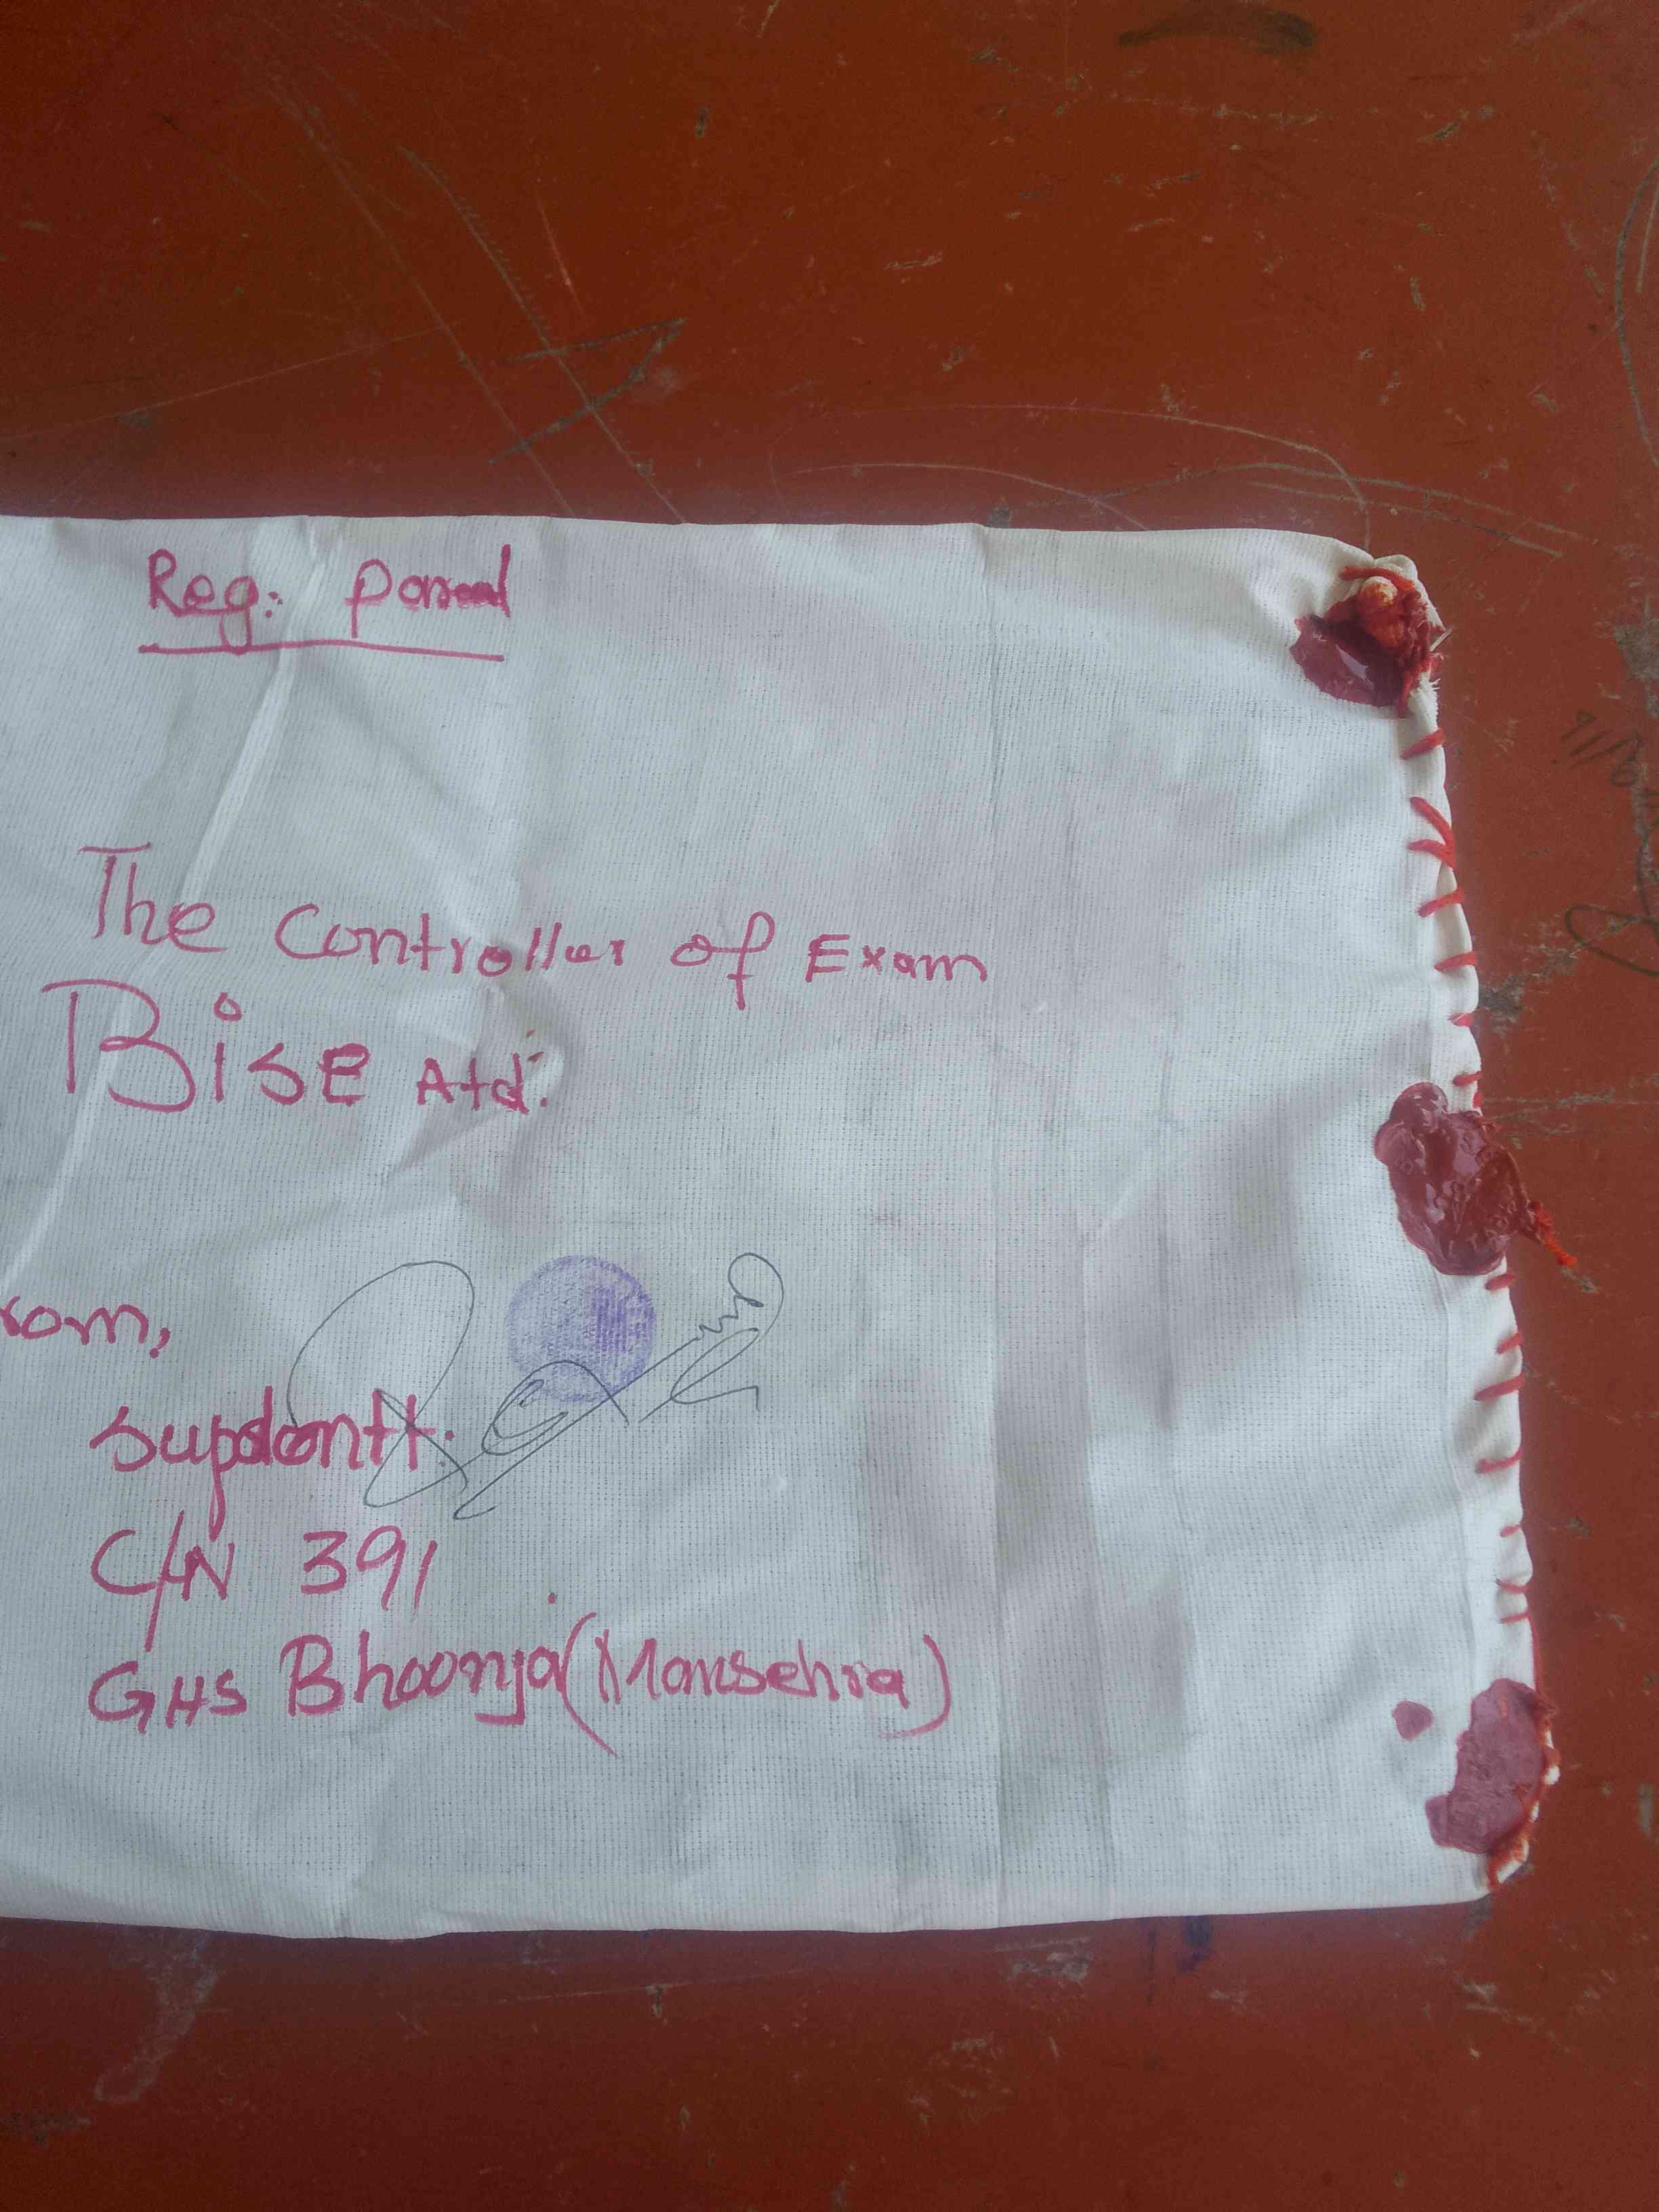 Reg: Parcel
The Controller of Exam
BisE Atd:
rom,
Supdentt:
C/N 391
GHS Bhoonja (Mansehra)